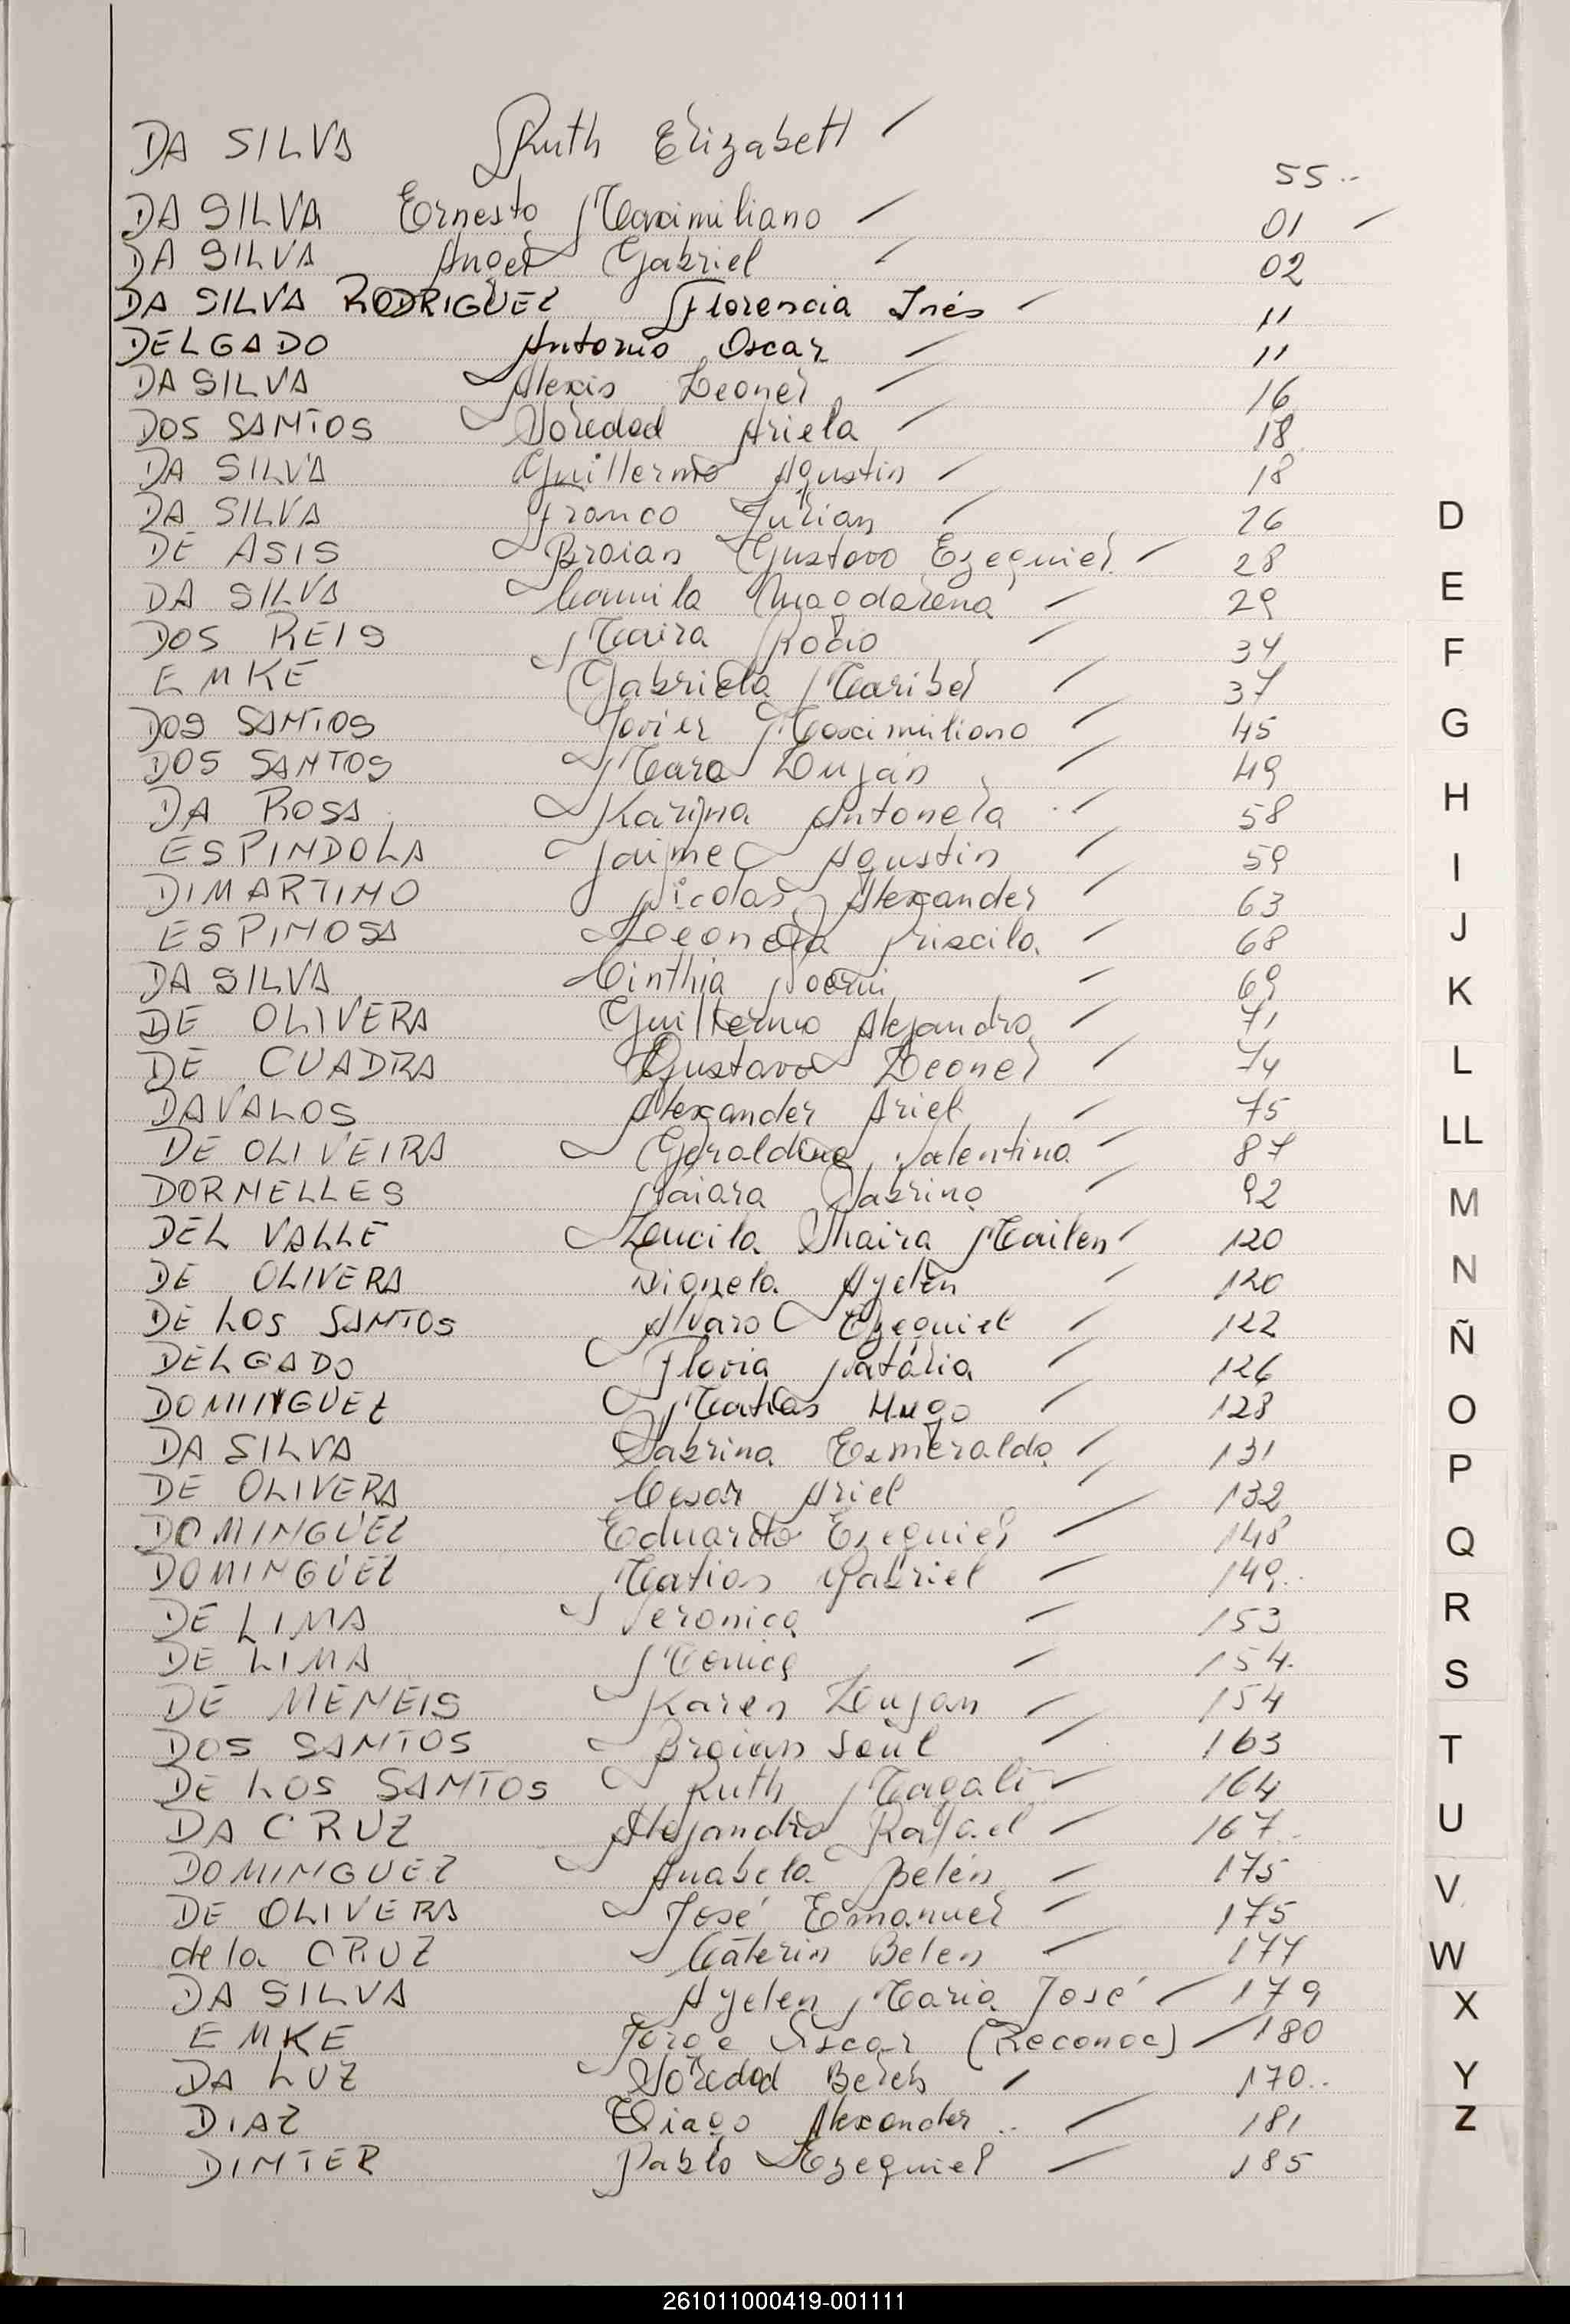 DA SILVA Ruth Elizabeth 55
DA SILVA Ernesto Maximiliano 01
DA SILVA Angel Gabriel 02
DA SILVA RODRIGUEZ Florencia Inés 11
DELGADO Antonio Oscar 11
DA SILVA Alexis Leonel 16
DOS SANTOS Soledad Ariela 18
DA SILVA Guillermo Agustin 18
DA SILVA Franco Julian 26
DE ASIS Braian Gustavo Ezequiel 28
DA SILVA Camila Magdalena 29
DOS REIS Maira Rocio 34
EMKE Gabriela Maribel 37
DOS SANTOS Javier Maximiliano 45
DOS SANTOS Mara Luján 49
DA ROSA Karina Antonela 58
ESPINDOLA Jaime Agustin 59
DIMARTINO Nicolas Alexander 63
ESPINOSA Leonela Priscila 68
DA SILVA Cinthia Noemi 69
DE OLIVERA Guillermo Alejandro 71
DE CUADRA Gustavo Leonel 74
DAVALOS Alexander Ariel 75
DE OLIVEIRA Geraldine Valentina 87
DORNELLES Naiara Sabrina 92
DEL VALLE Lucila Thaira Mailen 120
DE OLIVERA Ayelén 120
DE LOS SANTOS Alvaro Ezequiel 122
DELGADO Flavia Natalia 126
DOMINGUEZ Matias Hugo 128
DA SILVA Sabrina Esmeralda 131
DE OLIVERA Cesar Ariel 132
DOMINGUEZ Eduardo Ezequiel 148
DOMINGUEZ Matias Gabriel 149
DE LIMA Veronica 153
DE LIMA Monica 154
DE MENEIS Karen Lujan 154
DOS SANTOS Braian Saúl 163
DE LOS SANTOS Ruth Magali 164
DA CRUZ Alejandro Rafael 167
DOMINGUEZ Anabela Belén 175
DE OLIVERA José Emanuel 175
de la CRUZ Caterin Belen 177
DA SILVA Ayelen Maria José 179
EMKE Jorge Oscar (Reconoc) 180
DA LUZ Soledad Belén 170
DIAZ Thiago Alexander 181
DIMTER Pablo Ezequiel 185
D
E
F
G
H
I
J
K
L
LL
M
N
Ñ
O
P
Q
R
S
T
U
V
W
X
Y
Z
261011000419-001111